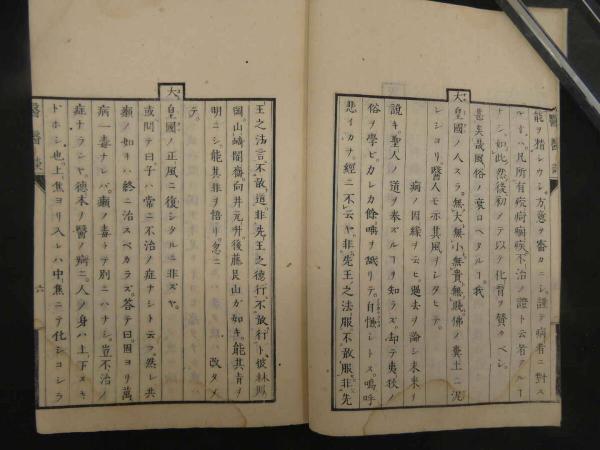 能ヲ精シウシ。方意ヲ審カニシ。謹テ病者ニ對ス
ルキハ。凡所有疾病痼疾不治ノ證ト云者アルコ
トナシ。如此然後初メテ以テ化育ヲ贊クベシ。
甚矣哉風俗ノ衰ロヘタルコ。我
大皇國ノ人スラ。無大無小無貴無賤。佛ノ糞土ニ泥
レシヨリ。醫人モ亦其風ヲシタヒテ。
病ノ因緣ヲ云ヒ過去ヲ論シ未來ヲ
說キ。聖人ノ道ヲ奉ズルコヲ知ラズ。却テ夷狄ノ
俗ヲ學ビ。カレカ餘唾ヲ リテ。自慢シトス。嗚呼
悲イカヲ。經ニ不云ヤ。非先王之法服不敢服非先
王之法言不敢道。非先王之德行不敢行ト。彼林羅
岡。山﨑闇齋。向井元升。後藤艮山ガ如キ。能其肯ヲ
明ニシ。能其非ヲ悟リ。忽ニ 改タメ
テ。
大皇國ノ正風ニ復シタルニ非ズヤ。
或問テ曰。子ハ常ニ不治ノ症ナシト云フ。然レ共
癩ノ如キハ終ニ治スベカラズ。答テ曰。固ヨリ萬
病一毒ナレバ。癩ノ毒トテ別ニハナシ。豈不治ノ
症ナランヤ。德本ノ醫ノ辨ニ。人ノ身ハ上下スキ
ドホシ也。上焦ヨリ入レハ中焦ニテ化シコシラ
醫醫談
六